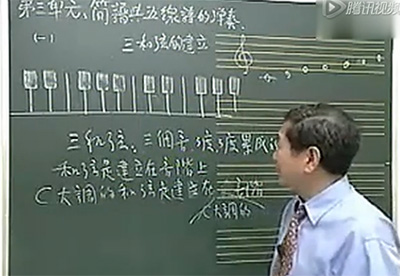 腾讯视频
第三單元、簡譜与五線譜的弹奏、
(一)
三和弦的建立
三和弦：三個音3度3度累成的
和弦是建立在音階上
C大調的和弦是建立在
C大調的